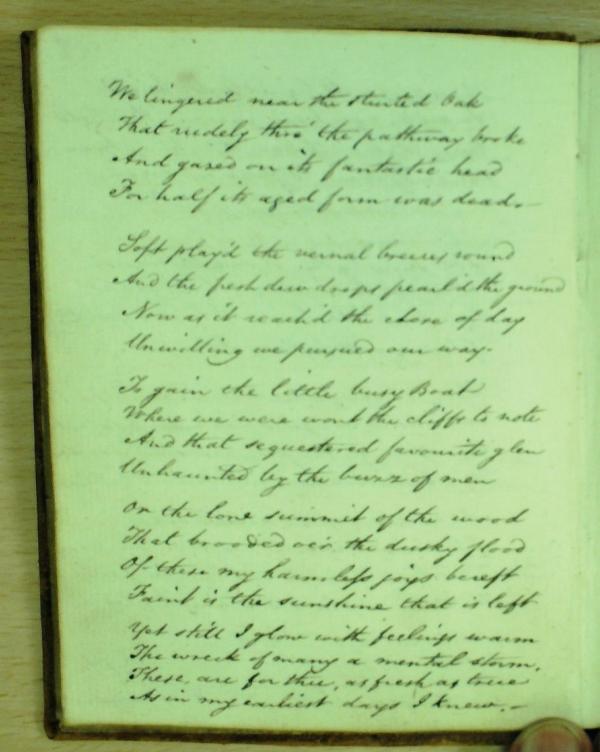 We lingered near the stunted Oak
That rudely thro' the pathway broke
And gazed on its fantastic head
For half its aged form was dead.—
Soft play'd the vernal breezes round
And the fresh dew drops pearl'd the ground
Now as it reach'd the close of day
Unwilling we pursued our way.
To gain the little busy Boat
Where we were wont the cliffs to note
And that sequestered favourite glen
Unhaunted by the buzz of men
Or the lone summit of the wood
That brooded o'er the dusky flood
Of these my harmless joys bereft
Faint is the sunshine that is left
Yet still I glow with feelings warm
The wreck of many a mental storm.
These, are for thee, as fresh as true
As in my earliest days I knew.—